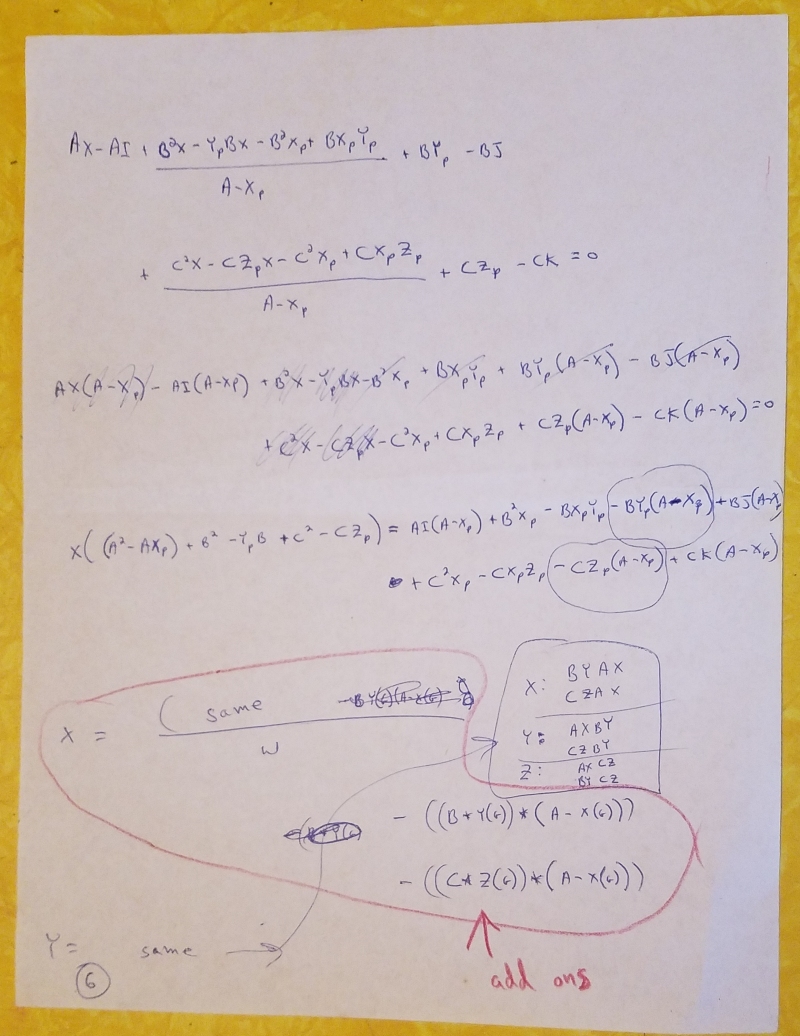 AX - AI + B²X - YpBX - B²Xp + BXpYp + BYp - BJ
A - Xp
+ C²X - CZpX - C²Xp + CXpZp + CZp - CK = 0
A - Xp
AX(A - Xp) - AI(A - Xp) + B²X - YpBX - B²Xp + BXpYp + BYp(A - Xp) - BJ(A - Xp)
+ C²X - CZpX - C²Xp + CXpZp + CZp(A - Xp) - CK(A - Xp) = 0
X( (A² - AXp) + B² - YpB + C² - CZp) = AI(A - Xp) + B²Xp - BXpYp - BYp(A - Xp) + BJ(A - Xp)
+ C²Xp - CXpZp - CZp(A - Xp) + CK(A - Xp)
X = ( same
W
X: BYAX
CZAX
Y: AXBY
CZBY
Z: AXCZ
BYCZ
- ((B * Y(6)) * (A - X(6)))
- ((C * Z(6)) * (A - X(6)))
Y = same
add ons
6